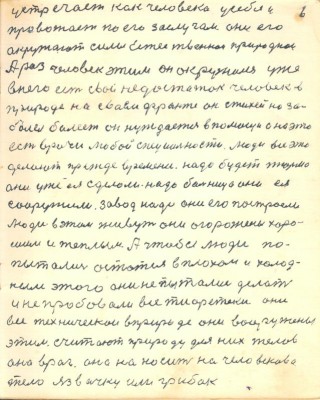 6
устречает как человека у себя и
провожает по его заслугам. они его
окружают силы естественная природной
А раз человек этим он окружился уже
в него ест свои недостаток человек в
природе на своем он стихейно за-
болел болеет он нуждается в помощи а на это
ест врачи любой специальности. люди все это
делают прежде времени. надо будет тюрмо
они уже ея сделали. надо больница они ея
сооружили. завод надо они его построели
люди в этом живут они огорожены хоро-
шим и теплым. А чтобы люди по-
пытались остатся в плохом и холод-
ном этого они не пытались делать
и не пробовали все они
все технически в природе они вооружены
этим. считают природу для них
она враг. она наносит на человекова
тело язвочку или грибок